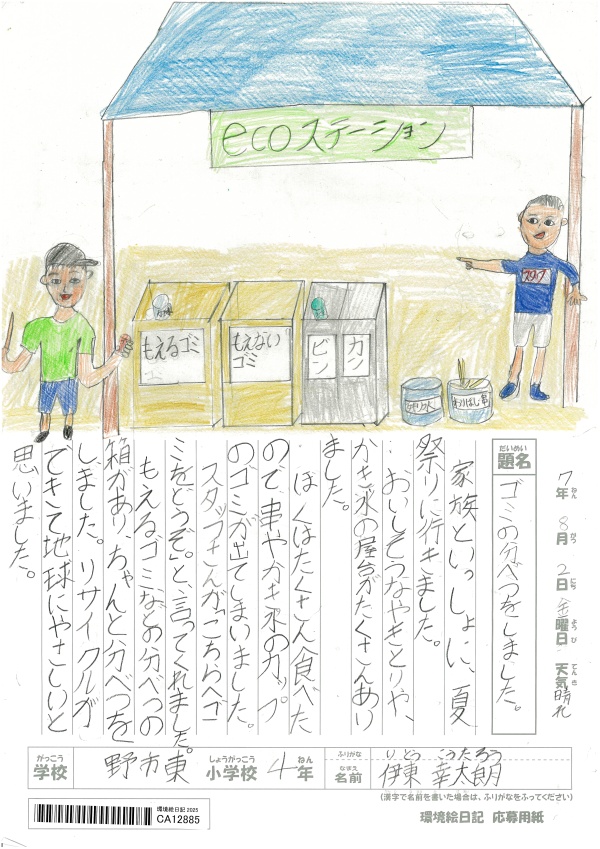 ecoステーション
スタッフ
もえるゴミ
もえない
ゴミ
ビン
カン
わりばし・串
7年 8月 2日 金曜日 天気 晴れ
ねん がつ にち ようび てんき
だいめい
題名
ゴミの分べつをしました。
家族といっしょに、夏
祭りに行きました。
おいしそうなやきとりや、
かき氷の屋台がたくさんあり
ました。
ぼくはたくさん食べた
ので、串やかき氷のカップ
のゴミが出てしまいました。
スタッフさんが「こちらへゴ
ミをどうぞ。」と、言ってくれました。
もえるゴミなどの分べつの
箱があり、ちゃんと分べつを
しました。リサイクルが
できて地球にやさしいと
思いました。
がっこう
学校
野市東
しょうがっこう
小学校
4年
ねん
ふりがな
いとう こうたろう
なまえ
名前
伊東 幸太朗
(漢字で名前を書いた場合は、ふりがなをふってください)
環境絵日記 2025
CA12885
環境絵日記 応募用紙